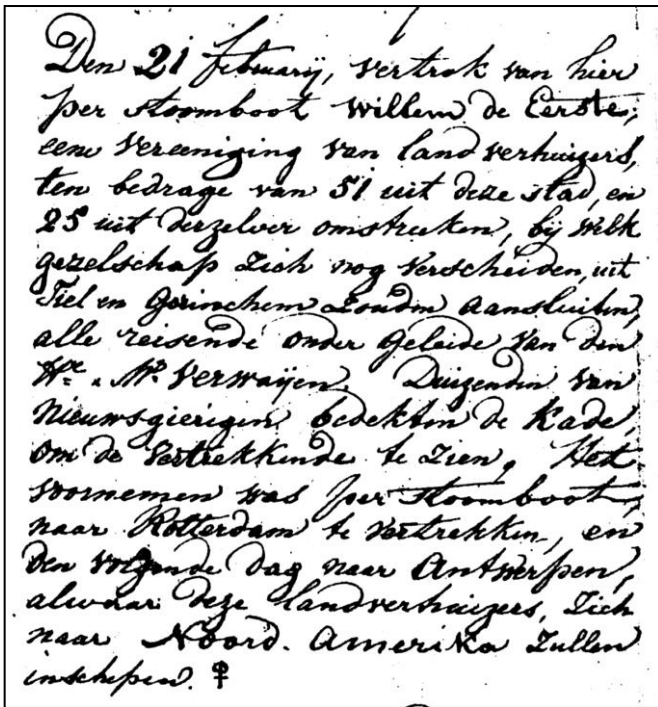 Den 21 february, vertrok van hier
per stoomboot willem de Eerste,
eene Vereeniging van landverhuizers,
ten bedrage van 51 uit deze stad, en
25 uit derzelver omstreeken, bij welk
gezelschap Zich nog Verscheiden, uit
Tiel en Gorinchem Zouden aansluiten,
alle reisende onder geleide van den
Hr. Mr. Verwaijen. Duizenden van
Nieuwsgierigen bedekten de Kade,
om de Vertrekkende te Zien, Het
voornemen was per stoomboot,
naar Rotterdam te vertrekken, en
den volgende dag naar Antwerpen,
alwaar deze landverhuizers, Zich
naar Noord. Amerika Zullen
inschepen.